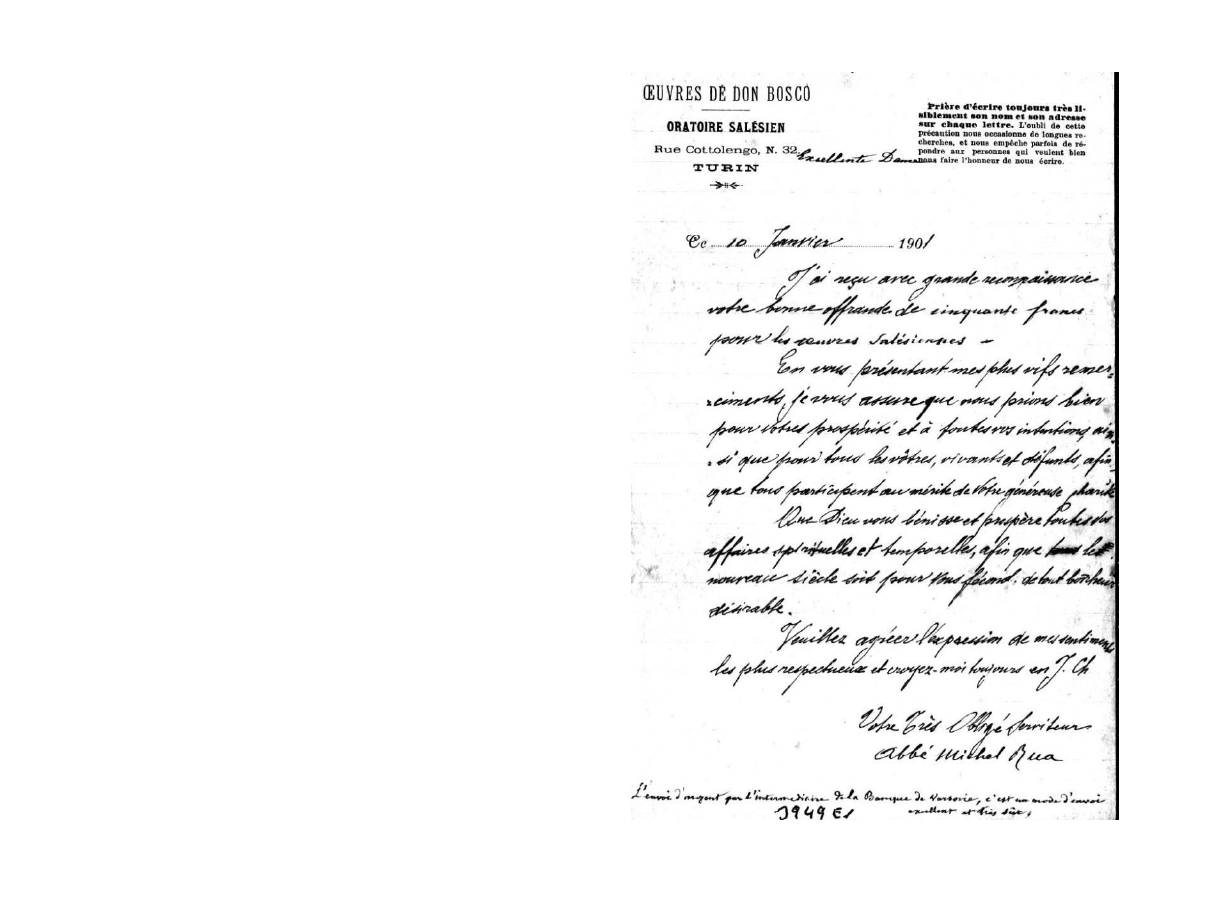 ŒUVRES DE DON BOSCO
ORATOIRE SALÉSIEN
Rue Cottolengo, N. 32
TURIN
Prière d'écrire toujours très li-
siblement son nom et son adresse
sur chaque lettre. L'oubli de cette
précaution nous occasionne de longues re-
cherches, et nous empêche parfois de ré-
pondre aux personnes qui veulent bien
nous faire l'honneur de nous écrire.
Excellente Dame
Ce 10 Janvier 1901
J'ai reçu avec grande reconnaissance
votre bonne offrande de cinquante francs
pour les œuvres Salésiennes -
En vous présentant mes plus vifs remer-
ciments, je vous assure que nous prions bien
pour votres prospérité et à toutes vos intentions, ain-
si que pour tous les vôtres, vivants et défunts, afin
que tous participent au mérite de votre généreuse charité
Que Dieu vous bénisse et prospère toutes vos
affaires spirituelles et temporelles, afin que le
nouveau siècle soit pour vous fécond de tout bonheur
désirable.
Veuillez agréer l'expression de mes sentiments
les plus respectueux et croyez-moi toujours en J. Ch
Votre Très Obligé Serviteur
Abbé Michel Rua
L'envoi d'argent par l'intermediaire de la Banque de Varsovie, c'est un mode d'envoi
excellent et très sûr,
3949 E1